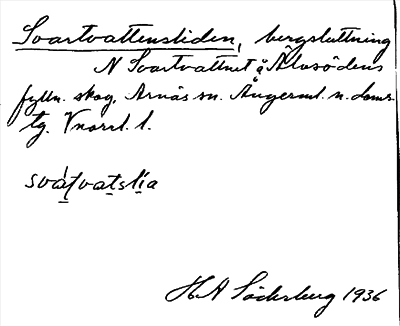 Svartvattensliden, bergsluttning
N Svartvattnet å Älvsödens
fylln. skog, Arnäs sn. Ångerml. n. doms.
tg. Vnorrl. l.
svạ́tvatslia
H A Söderberg 1936